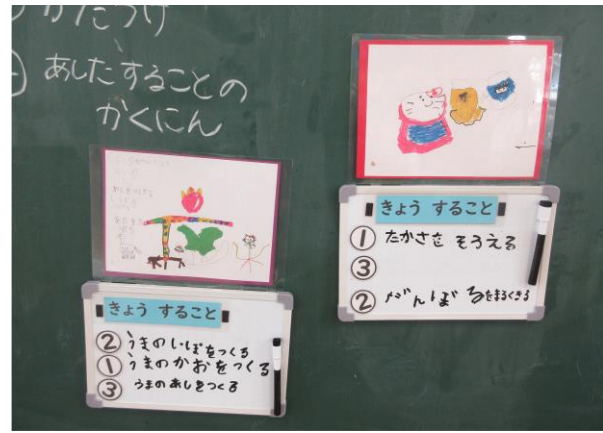 かたづけ
あしたすることの
かくにん
きょう すること
② うまのいぼをつくる
① うまのかおをつくる
③ うまのあしをつくる
きょう すること
① たかさを そろえる
③
② だんぼるをまるくきる